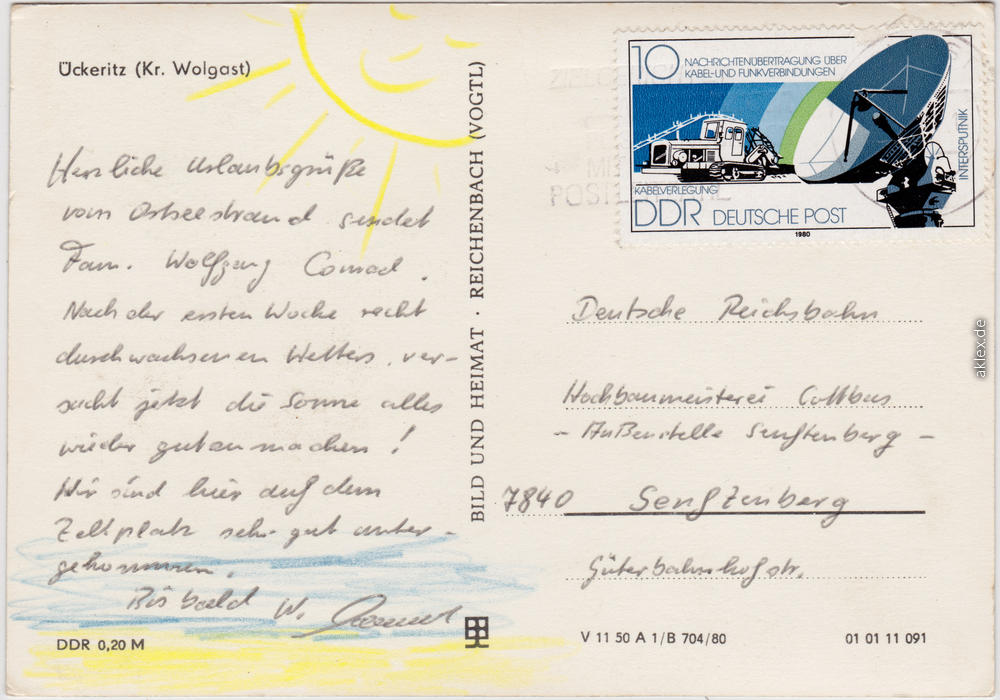 Ückeritz (Kr. Wolgast)
Herzliche Urlaubsgrüße
vom Ostseestrand sendet
Fam. Wolfgang Conrad.
Nach der ersten Woche recht
durchwachsenen Wetters, ver-
sucht jetzt die Sonne alles
wieder gutzumachen!
Wir sind hier auf dem
Zeltplatz sehr gut unter-
gekommen.
Bis bald W. Conrad
DDR 0,20 M
BILD UND HEIMAT · REICHENBACH (VOGTL)
10 NACHRICHTENÜBERTRAGUNG ÜBER
KABEL-UND FUNKVERBINDUNGEN
INTERSPUTNIK
KABELVERLEGUNG
DDR DEUTSCHE POST
1980
Deutsche Reichsbahn
Hochbaumeisterei Cottbus
- Außenstelle Senftenberg -
7840 Senftenberg
Güterbahnhofstr.
V 11 50 A 1/B 704/80
01 01 11 091
aklex.de